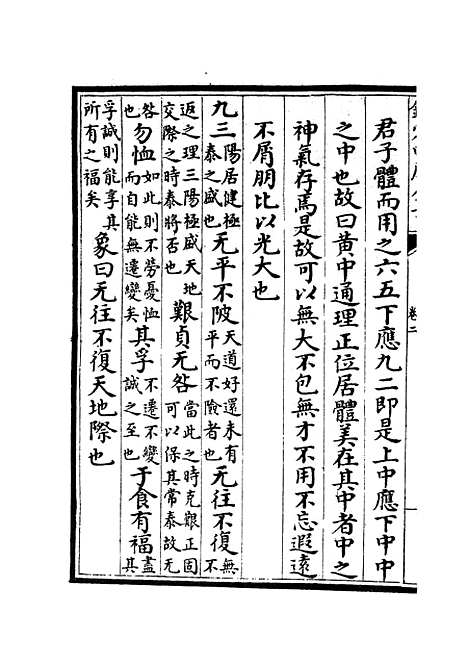 卷二
君子體而用之六五下應九二即是上中應下中中
之中也故曰黄中通理正位居體美在其中者中之
神氣存焉是故可以無大不包無才不用不忘遐遠
不屑朋比以光大也
九三陽居健極泰之盛也无平不陂天道好還未有平而不險者也无往不復無不
返之理三陽極盛天地交際之時泰將否也艱貞无咎當此之時克艱正固可以保其常泰故无
咎也勿恤如此則不勞憂恤而自能無遷變矣其孚不遷不變誠之至也于食有福盡其
孚誠則能享其所有之福矣象曰无往不復天地際也